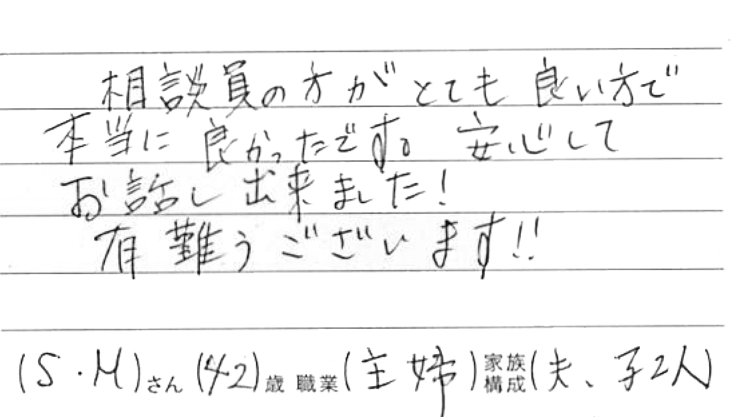 相談員の方がとても良い方で
本当に良かったです。安心して
お話し出来ました!
有難うございます!!
(S・M)さん(42)歳 職業(主婦)家族構成(夫、子2人)